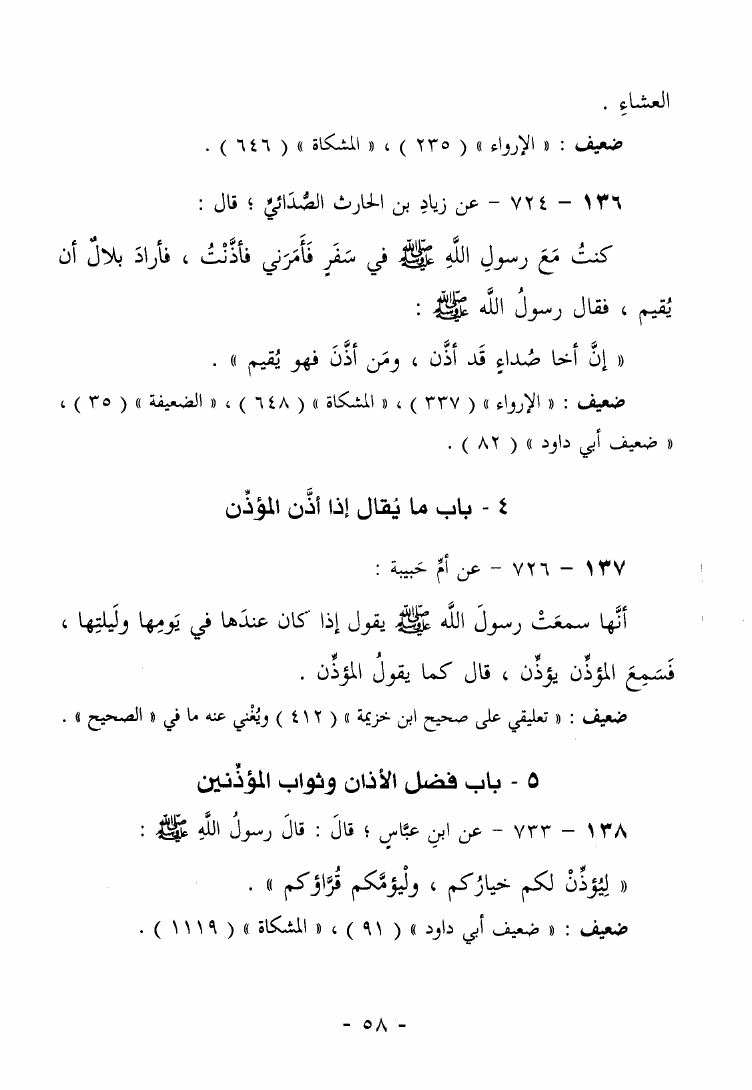 العشاءِ .
ضعيف : « الإرواء » ( ٢٣٥ ) ، « المشكاة » ( ٦٤٦ ) .
١٣٦ – ٧٢٤ – عن زيادِ بن الحارث الصُّدَائيِّ ؛ قال :
كنتُ مَعَ رسولِ اللَّهِ ﷺ في سَفَرٍ فَأَمَرَني فأذَّنْتُ ، فأرادَ بلالٌ أن
يُقيم ، فقال رسولُ اللَّه ﷺ :
« إنَّ أخا صُداءٍ قَد أذَّن ، ومَن أذَّنَ فهو يُقيم » .
ضعيف : « الإرواء » ( ٢٣٧ ) ، « المشكاة » ( ٦٤٨ ) ، « الضعيفة » ( ٣٥ ) ،
« ضعيف أبي داود » ( ٨٢ ) .
٤ - باب ما يُقال إذا أذَّن المؤذِّن
١٣٧ – ٧٢٦ – عن أمِّ حَبيبة :
أنَّها سمعَتْ رسولَ اللَّه ﷺ يقول إذا كان عندَها في يَومِها ولَيلتِها ،
فَسَمِعَ المؤذِّن يؤذِّن ، قال كما يقولُ المؤذِّن .
ضعيف : « تعليقي على صحيح ابن خزيمة » ( ٤١٢ ) ويُغْني عنه ما في « الصحيح » .
٥ - باب فضل الأذان وثواب المؤذِّنين
١٣٨ – ٧٣٣ – عن ابنِ عبَّاسٍ ؛ قالَ : قالَ رسولُ اللَّهِ ﷺ :
« لِيُؤذِّنْ لكم خيارُكم ، ولْيؤمَّكم قُرَّاؤكم » .
ضعيف : « ضعيف أبي داود » ( ٩١ ) ، « المشكاة » ( ١١١٩ ) .
- ٥٨ -